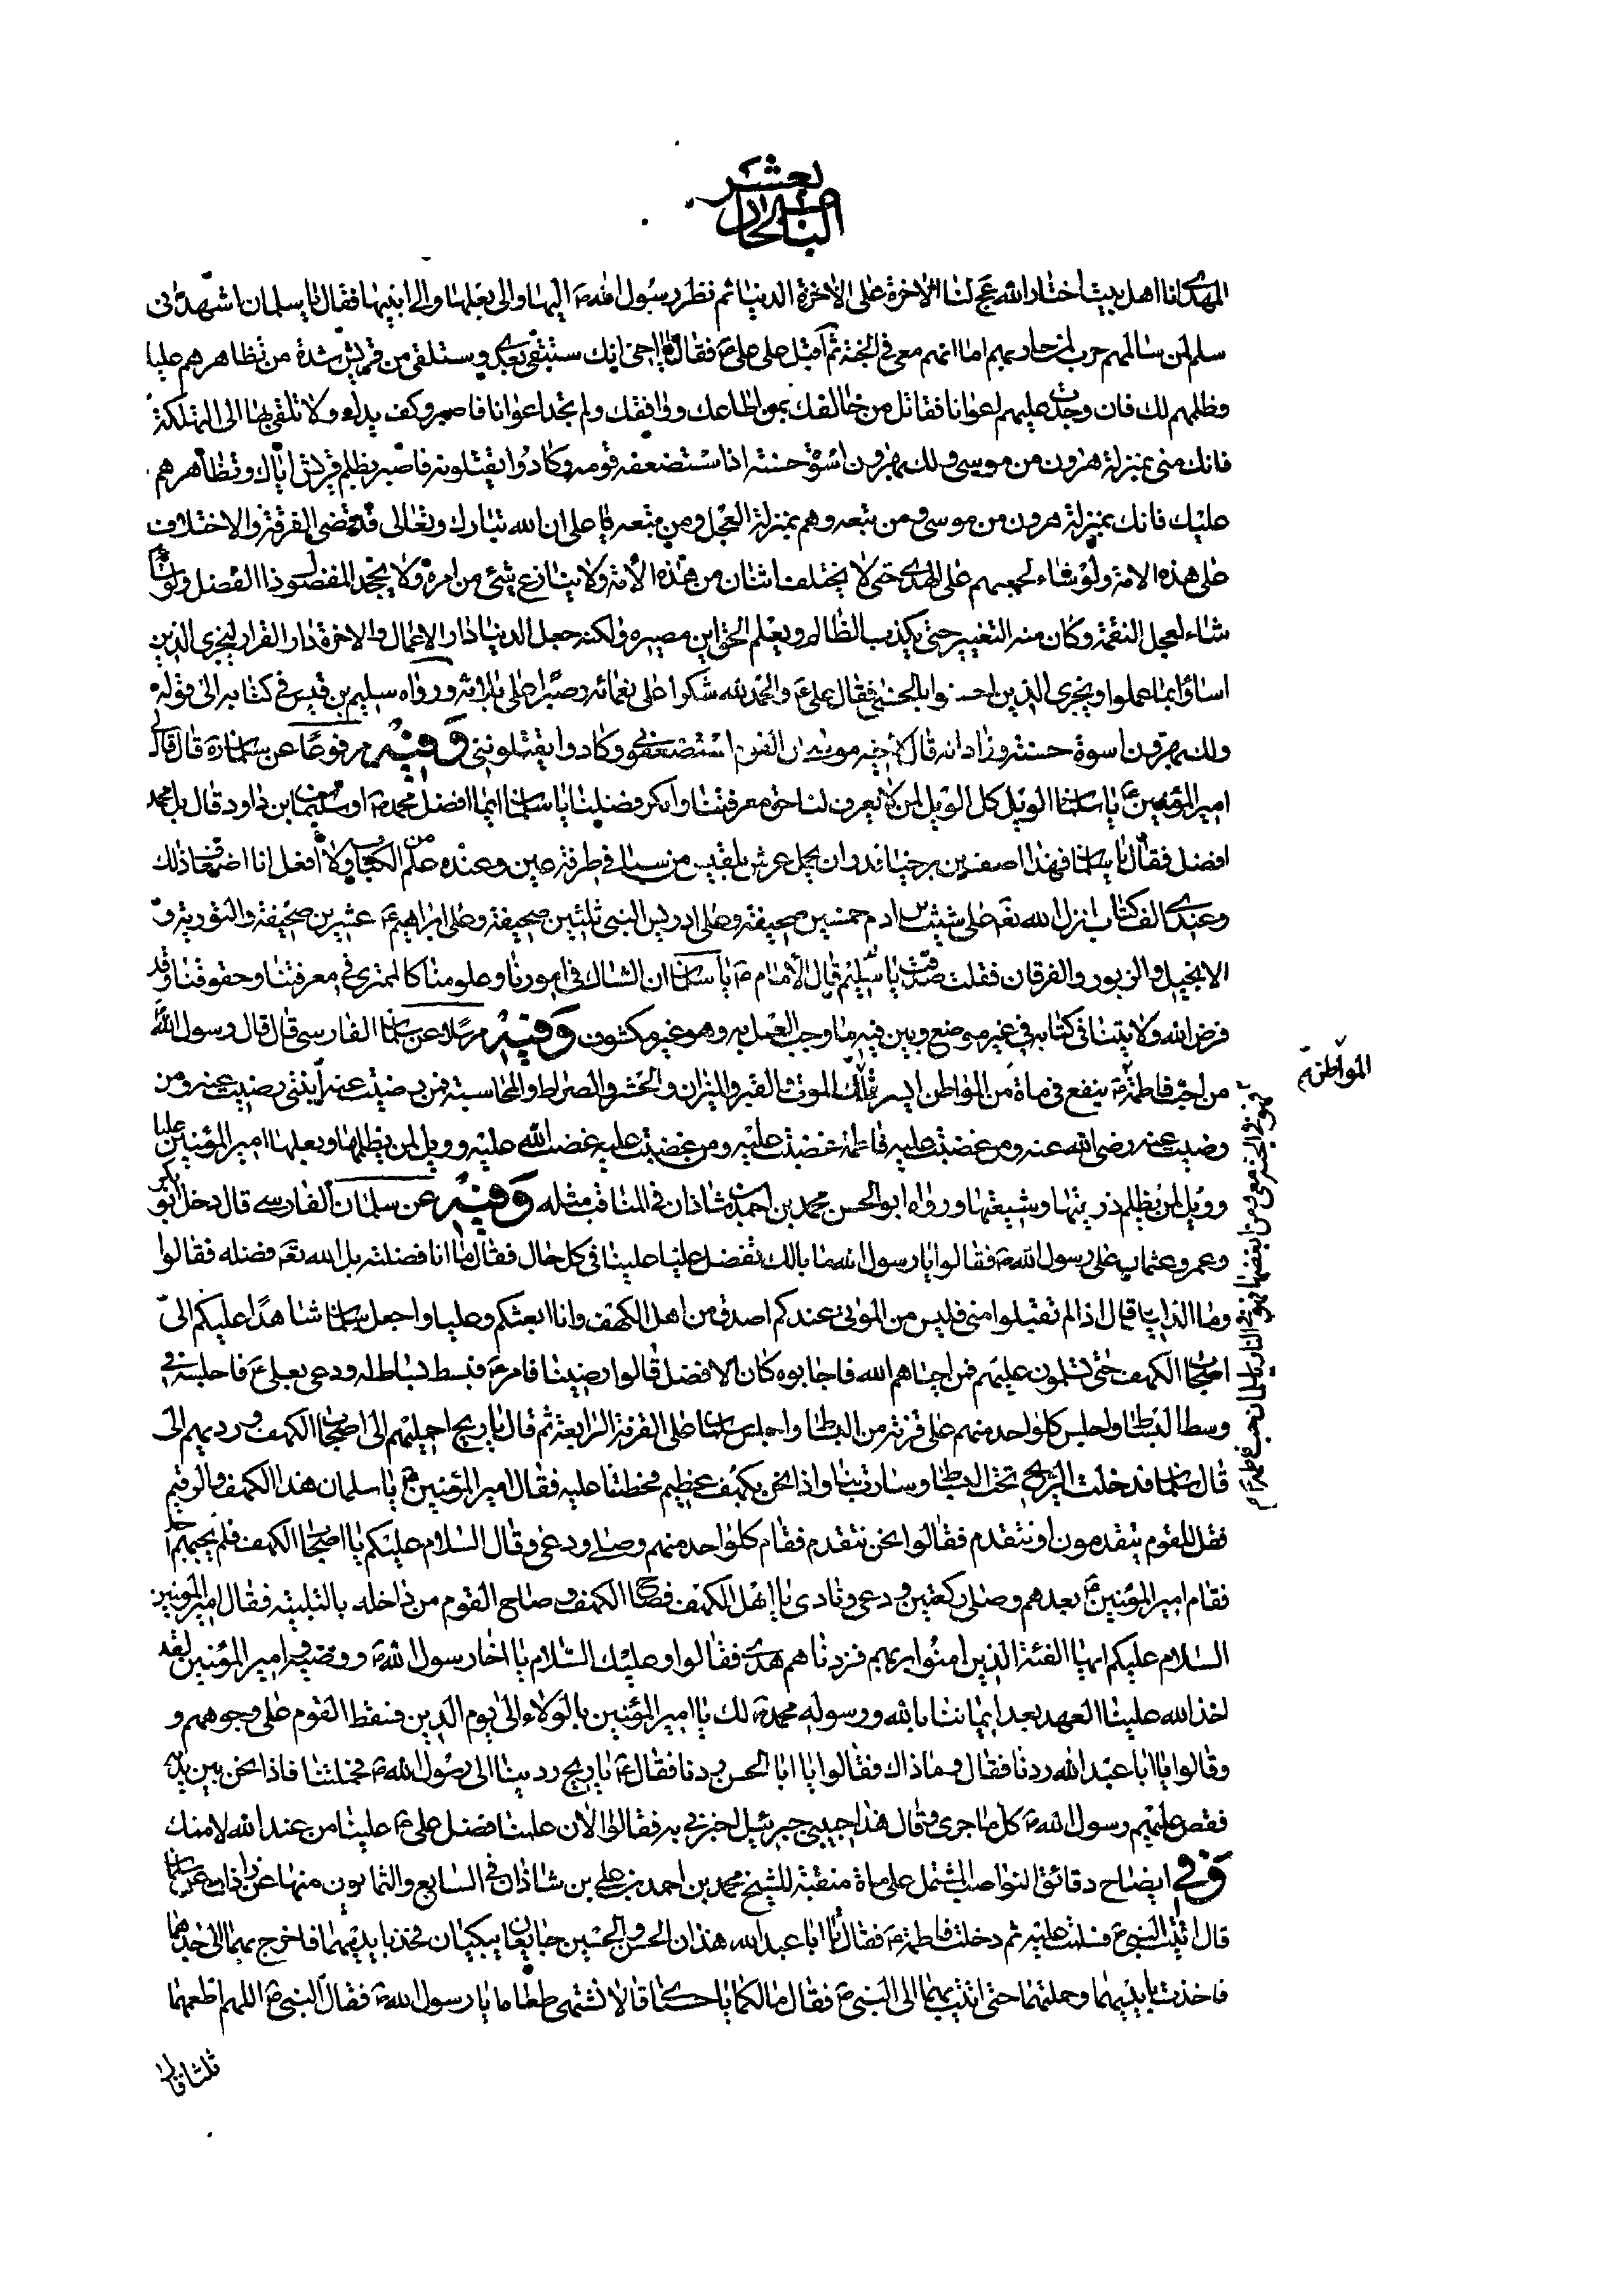 الباب الحادي عشر
المهدي انا اهل بيت اختار الله عج لنا الاخرة على الدنيا ثم نظر رسول الله ص اليها والى بعلها والى ابنيها فقال يا سلمان اشهد اني
سلم لمن سالمهم حرب لمن حاربهم اما انهم معي في الجنة ثم اقبل على علي ع فقال يا اخي انك ستبقى بعدي وستلقى من قريش شدة من تظاهرهم عليك
وظلمهم لك فان وجدت عليهم اعوانا فقاتل من خالفك بمن اطاعك ووافقك ولم تجد اعوانا فاصبر وكف يدك ولا تلقى بها الى التهلكة
فانك مني بمنزلة هرون من موسى ولك بهرون اسوة حسنة اذا ستضعفه قومه وكادوا يقتلونه فاصبر بظلم قريش اياك وتظاهرهم
عليك فانك بمنزلة هرون من موسى ومن تبعه وهم بمنزلة العجل ومن تبعه يا علي ان الله تبارك وتعالى قد قضى الفرقة والاختلاف
على هذه الامة ولو شاء لجمعهم على الهدى حتى لا يختلف اثنان من هذه الامة ولا ينازع شيئ من امره ولا يجحد المفضول ذا الفضل ولو
شاء لعجل النقمة وكان منه التغيير حتى يكذب الظالم ويعلم الحق اين مصيره ولكنه جعل الدنيا دار الاعمال والاخرة دار القرار ليجزى الذين
اساؤا بما عملوا ويجزى الذين احسنوا بالحسنى فقال علي ع والحمد لله شكرا على نعمائه وصبرا على بلائه ورواه سليم بن قيس في كتابه الى قوله
ولك بهرون اسوة حسنة وزاد انه قال لاخيه موسى ان القوم استضعفوني وكادوا يقتلونني وفيه مرفوعا عن سلمان ره قال قال لي
امير المؤمنين ع يا سلمان الويل كل الويل لمن لا يعرف لنا حق معرفتنا وانكر فضلنا يا سلمان ايما افضل محمد ص او سليمان ابن داود قال بل محمد
افضل فقال يا سلمان فهذا اصف بن برخيا قدر ان يحمل عرش بلقيس من سبا في طرفة عين وعنده علم من الكتاب ولا افعل انا اضعاف ذلك
وعندي الف كتاب انزل الله تع على شيث بن ادم خمسين صحيفة وعلى ادريس النبي ثلثين صحيفة وعلى ابراهيم ع عشرين صحيفة والتورية و
الانجيل والزبور والفرقان فقلت صدقت يا سيدي قال الامام ع يا سلمان ان الشاك في امورنا وعلومنا كالممتري في معرفتنا وحقوقنا وقد
فرض الله ولايتنا في كتابه في غير موضع وبين فيه ما وجب العمل به وهو غير مكشوف وفيه مرسلا عن سلمان الفارسي قال قال رسول الله
من احب فاطمة ع ينفع في ماة من المواطن ايسر تلك الموت والقبر والميزان والحشر والصراط والمحاسبة فمن رضيت عنه ابنتي رضيت عنه ومن
رضيت عنه رضى الله عنه ومن غضبت عليه فاطمة غضبت عليه ومن غضبت عليه غضب الله عليه وويل لمن يظلمها وبعلها امير المؤمنين عليا
وويل لمن يظلم ذريتها وشيعتها ورواه ابو الحسن محمد بن احمد بن شاذان في المناقب مثله وفيه عن سلمان الفارسي قال دخل ابو بكر
وعمر وعثمان على رسول الله ص فقالوا يا رسول الله ما بالك تفضل عليا علينا في كل حال فقال ما انا فضلته بل الله تع فضله فقالوا
وما الدليل قال اذا لم تقبلوا مني فليس من الموتى عندكم اصدق من اهل الكهف وانا ابعثكم وعليا واجعل سلمان شاهدا عليكم الى
اصحاب الكهف حتى تسلمون عليهم فمن احياهم الله فاجابوه كان الافضل قالوا رضينا فامر ع فبسط بساط له ودعى بعلي ع فاجلسه في
وسط البساط واجلس كل واحد منهم على قرنة من البساط واجلس سلمان على القرنة الرابعة ثم قال يا ريح احمليهم الى اصحاب الكهف ورديهم الى
قال سلمان فدخلت الريح تحت البساط وسارت بنا واذا نحن بكهف عظيم فحطتنا عليه فقال امير المؤمنين ع يا سلمان هذا الكهف والرقيم
فقل للقوم يتقدمون او نتقدم فقالوا نحن نتقدم فقام كل واحد منهم وصلى ودعى وقال السلام عليكم يا اصحاب الكهف فلم يجبهم احد
فقام امير المؤمنين ع بعدهم وصلى ركعتين ودعى ونادى يا اهل الكهف فصاح الكهف وصاح القوم من داخله بالتلبية فقال امير المؤمنين
السلام عليكم ايها الفئة الذين امنوا بربهم فزدناهم هدى فقالوا وعليك السلام يا اخا رسول الله ص ووصيه امير المؤمنين لقد
اخذ الله علينا العهد بعد ايماننا بالله ورسوله محمد ص لك يا امير المؤمنين بالولاء الى يوم الدين فسقط القوم على وجوههم و
وقالوا يا ابا عبد الله ردنا فقال وما ذاك فقالوا يا ابا الحسن ردنا فقال ع يا ريح ردينا الى رسول الله ص فحملتنا فاذا نحن بين يديه
فقص عليهم رسول الله ص كل ما جرى وقال هذا حبيبي جبرئيل اخبرني به فقالوا الان علمنا فضل علي ع علينا من عند الله لا منك
وفي ايضاح دقائق النواصب المشتمل على ماة منقبة للشيخ محمد بن احمد بن علي بن شاذان في السابع والثمانون منها عن زاذان عن سلمان
قال اتيت النبي ص فسلمت عليه ثم دخلت فاطمة ع فقال يا ابا عبد الله هذان الحسن والحسين جايعان يبكيان فخذ بايديهما فاخرج بهما الى جدهما
فاخذت بايديهما وحملتهما حتى اتيت بهما الى النبي ص فقال مالكما يا حسناي قالا نشتهى طعاما يا رسول الله ص فقال النبي ص اللهم اطعمهما
ثلثا قال
المواطن
فهو في الجنة معي ومن ابغضها فهو في النار يا سلمان حب فاطمة